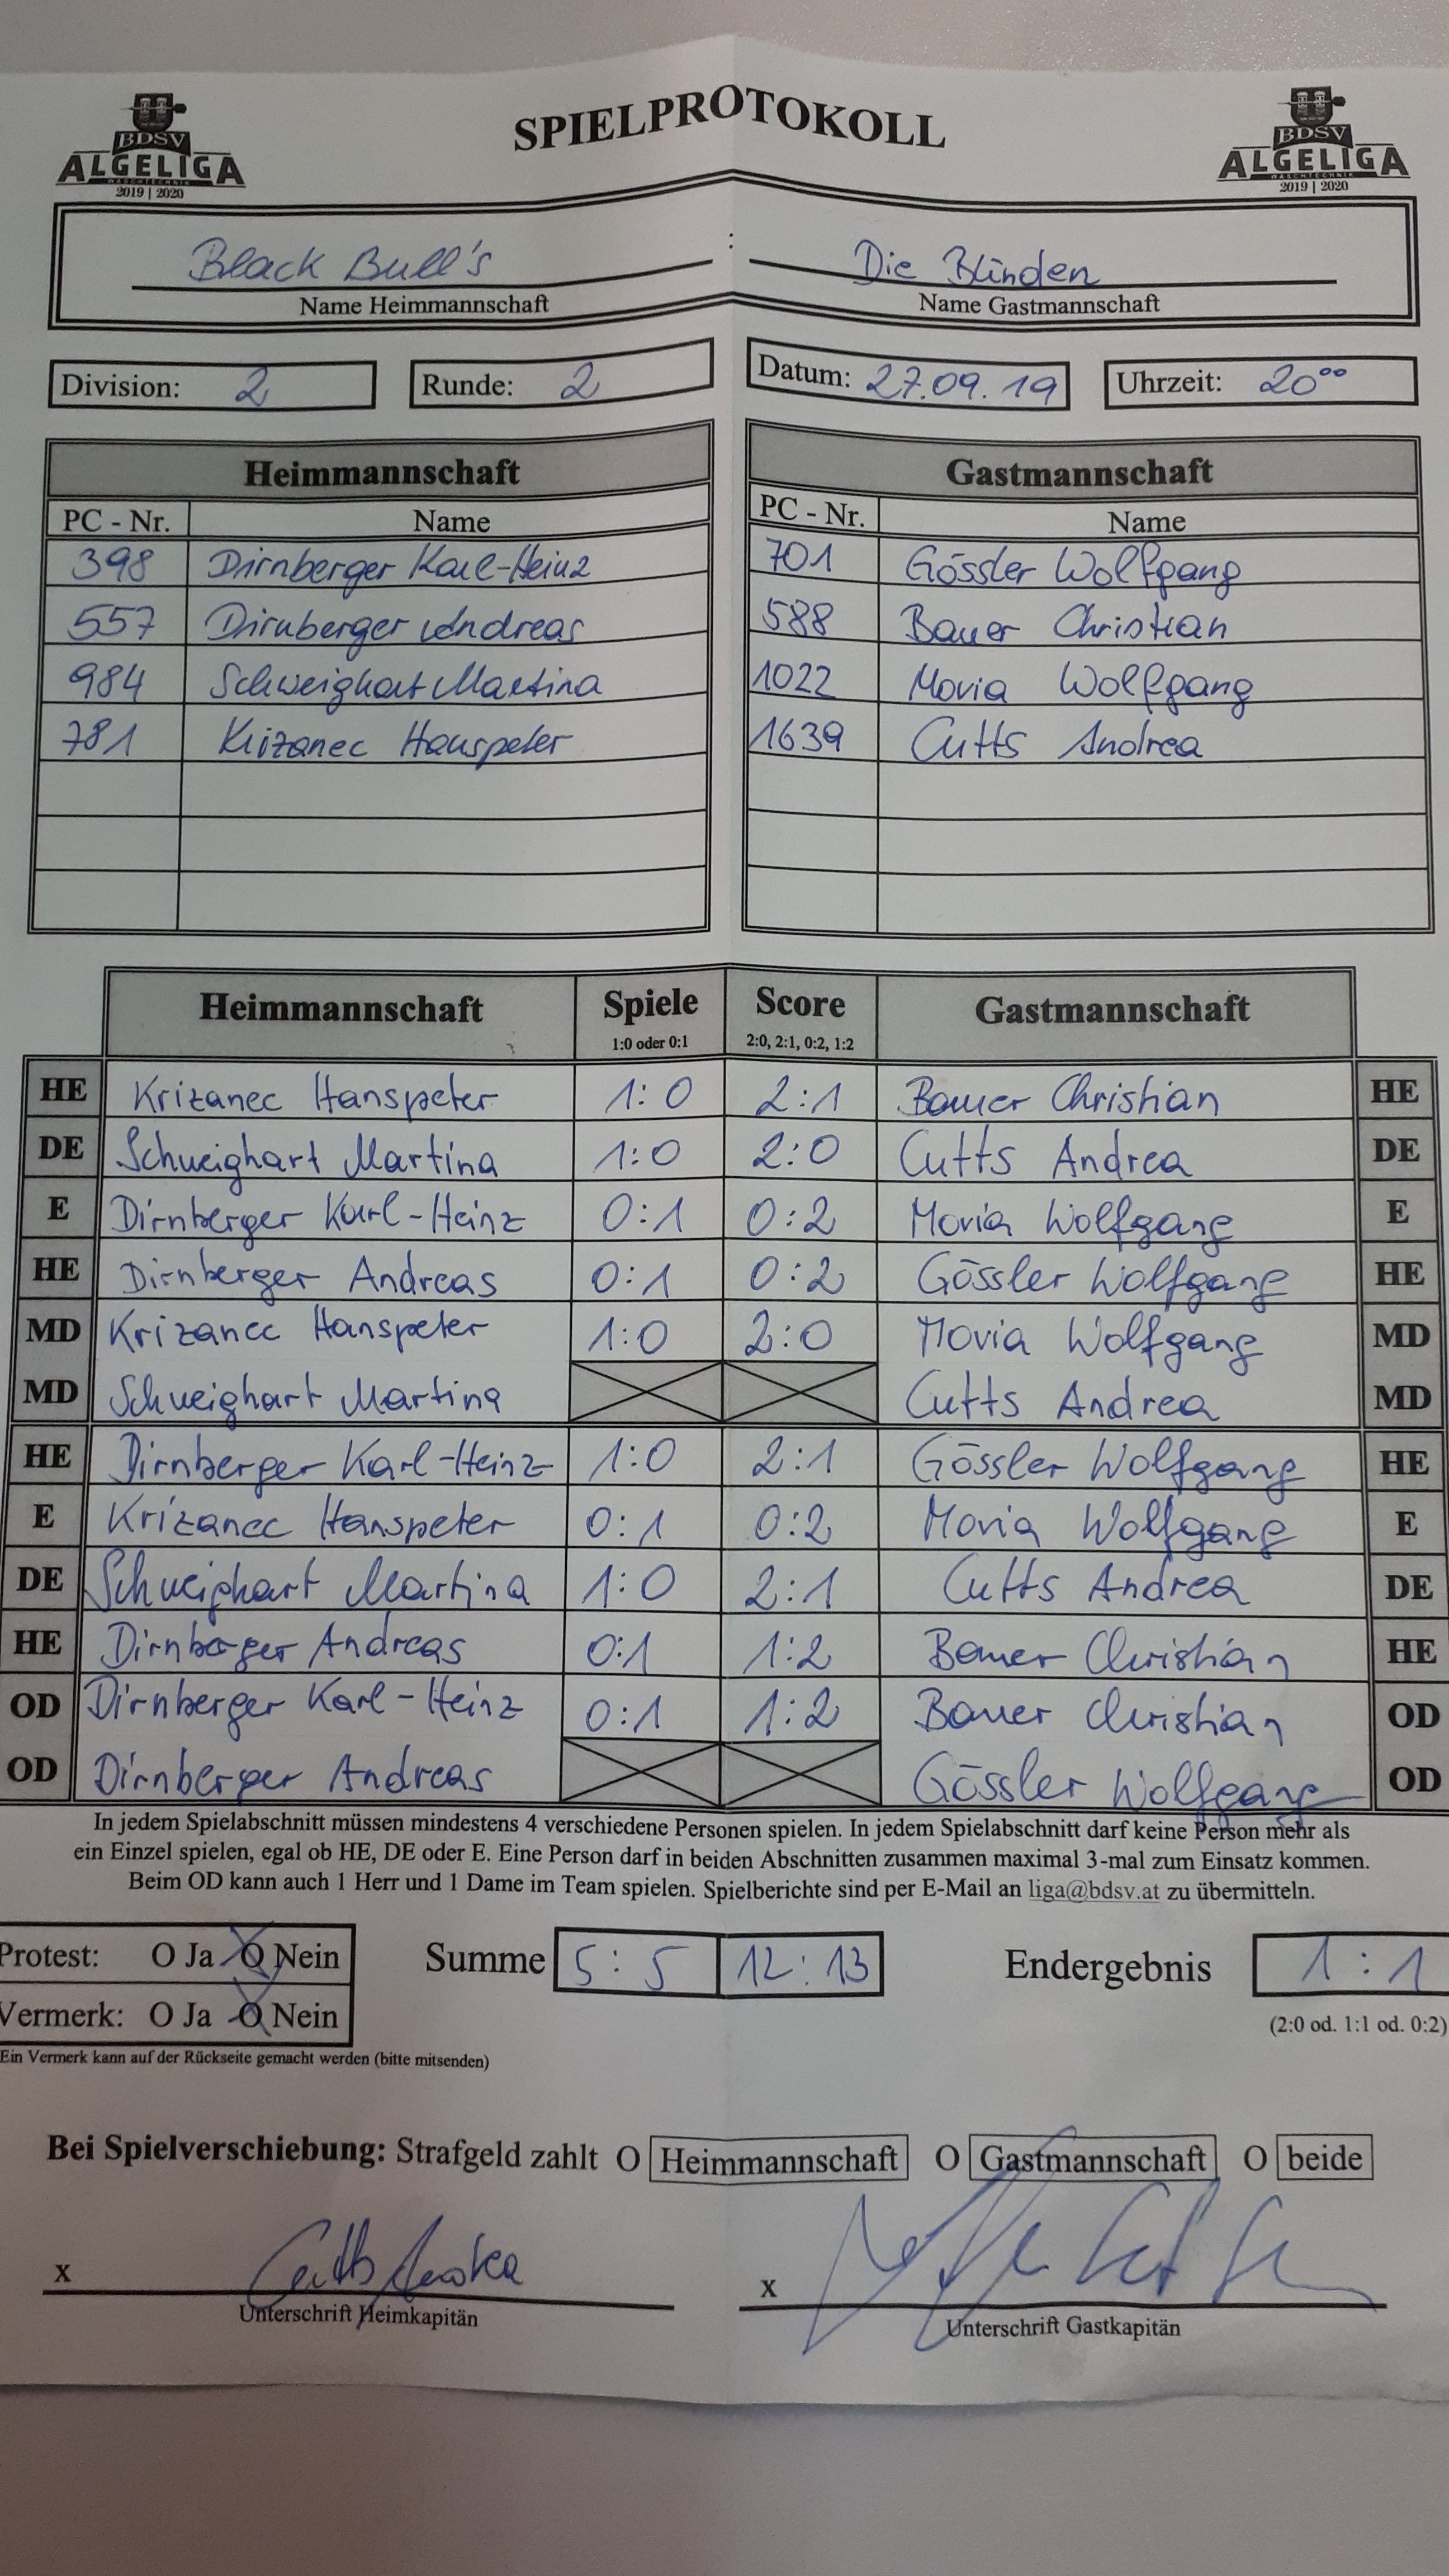 SPIELPROTOKOLL
BDSV BDSV
ALGELIGA ALGELIGA
2019 | 2020 2019 | 2020
Black Bull's : Die Blinden
Name Heimmannschaft Name Gastmannschaft
Division: 2 Runde: 2 Datum: 27.09.19 Uhrzeit: 20⁰⁰
Heimmannschaft Gastmannschaft
PC - Nr. Name PC - Nr. Name
398 Dirnberger Karl-Heinz 701 Gössler Wolfgang
557 Dirnberger Andreas 588 Bauer Christian
984 Schweighart Martina 1022 Movia Wolfgang
781 Krizanec Hanspeter 1639 Cutts Andrea
Heimmannschaft Spiele Score Gastmannschaft
1:0 oder 0:1 2:0, 2:1, 0:2, 1:2
HE Krizanec Hanspeter 1:0 2:1 Bauer Christian HE
DE Schweighart Martina 1:0 2:0 Cutts Andrea DE
E Dirnberger Karl-Heinz 0:1 0:2 Movia Wolfgang E
HE Dirnberger Andreas 0:1 0:2 Gössler Wolfgang HE
MD Krizanec Hanspeter 1:0 2:0 Movia Wolfgang MD
MD Schweighart Martina Cutts Andrea MD
HE Dirnberger Karl-Heinz 1:0 2:1 Gössler Wolfgang HE
E Krizanec Hanspeter 0:1 0:2 Movia Wolfgang E
DE Schweighart Martina 1:0 2:1 Cutts Andrea DE
HE Dirnberger Andreas 0:1 1:2 Bauer Christian HE
OD Dirnberger Karl-Heinz 0:1 1:2 Bauer Christian OD
OD Dirnberger Andreas Gössler Wolfgang OD
In jedem Spielabschnitt müssen mindestens 4 verschiedene Personen spielen. In jedem Spielabschnitt darf keine Person mehr als
ein Einzel spielen, egal ob HE, DE oder E. Eine Person darf in beiden Abschnitten zusammen maximal 3-mal zum Einsatz kommen.
Beim OD kann auch 1 Herr und 1 Dame im Team spielen. Spielberichte sind per E-Mail an liga@bdsv.at zu übermitteln.
Protest: O Ja O Nein Summe 5:5 12:13 Endergebnis 1:1
Vermerk: O Ja O Nein (2:0 od. 1:1 od. 0:2)
Ein Vermerk kann auf der Rückseite gemacht werden (bitte mitsenden)
Bei Spielverschiebung: Strafgeld zahlt O Heimmannschaft O Gastmannschaft O beide
x Cutts Andrea x
Unterschrift Heimkapitän Unterschrift Gastkapitän